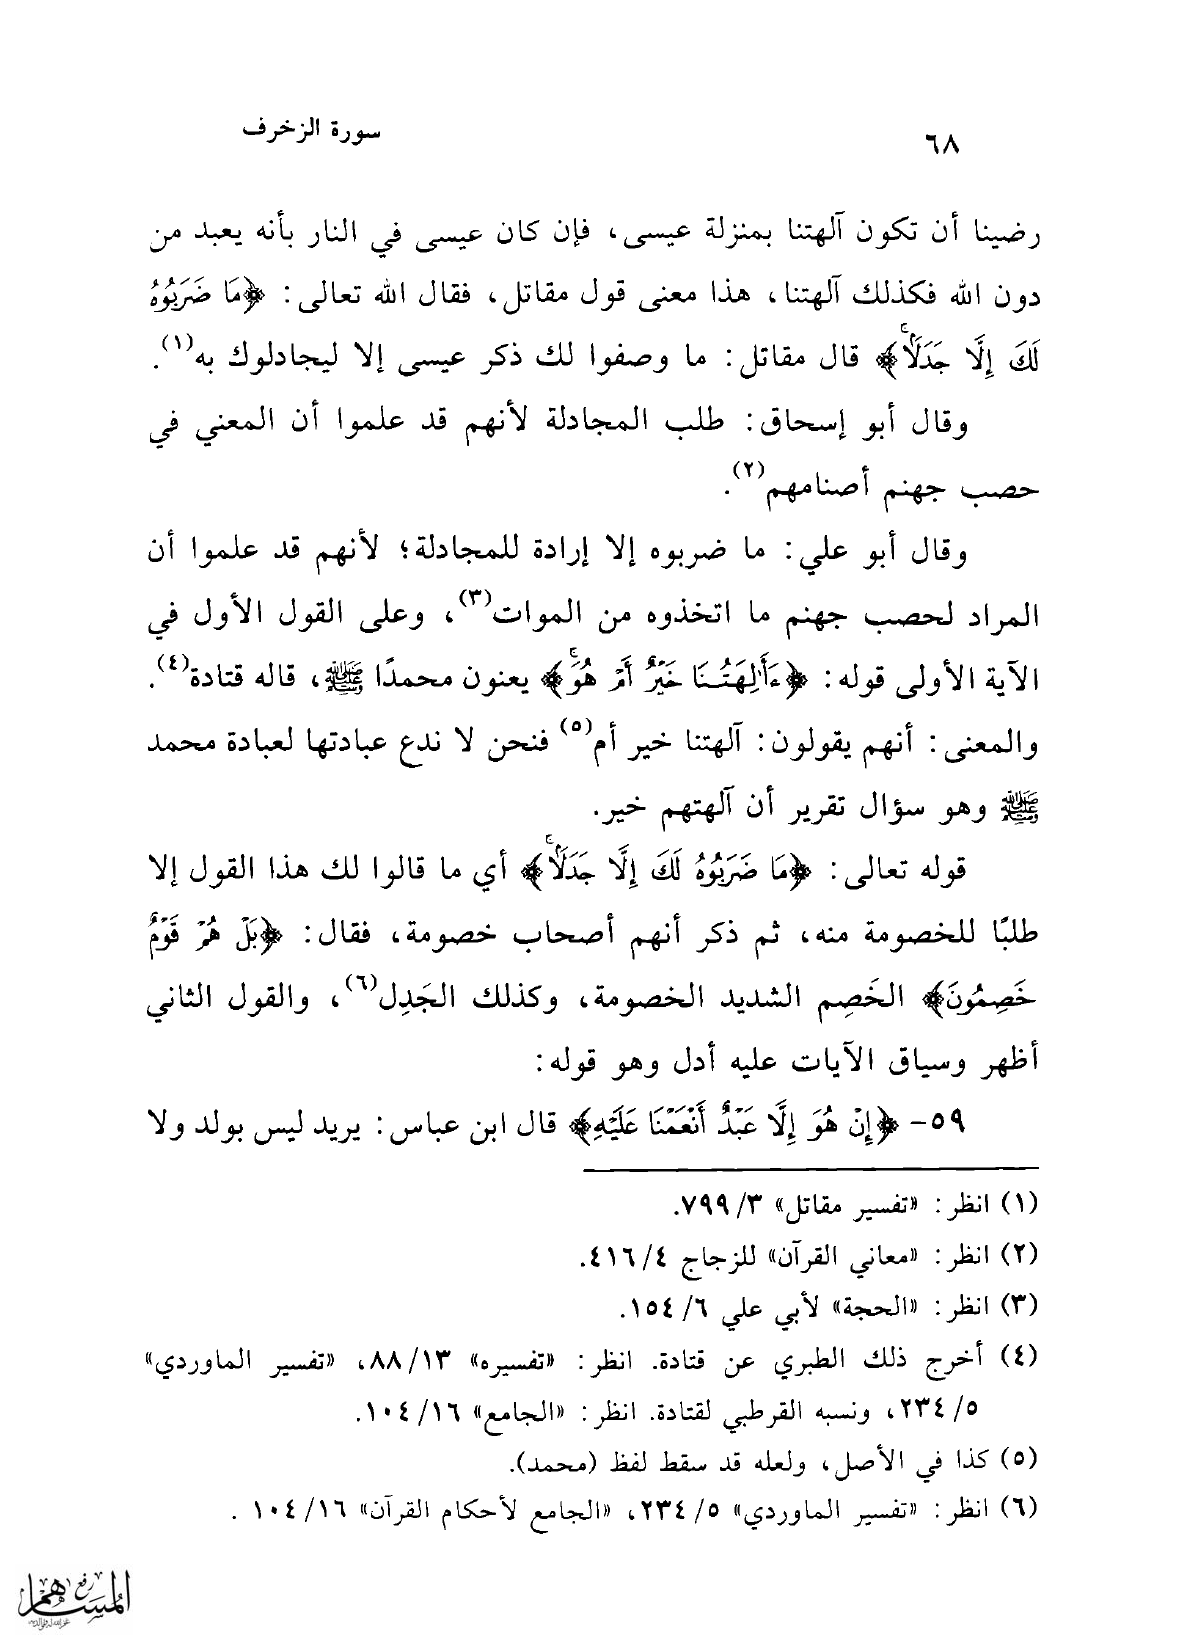 ٦٨
سورة الزخرف
رضينا أن تكون آلهتنا بمنزلة عيسى، فإن كان عيسى في النار بأنه يعبد من
دون الله فكذلك آلهتنا، هذا معنى قول مقاتل، فقال الله تعالى: ﴿مَا ضَرَبُوهُ
لَكَ إِلَّا جَدَلًاۚ﴾ قال مقاتل: ما وصفوا لك ذكر عيسى إلا ليجادلوك به(١).
وقال أبو إسحاق: طلب المجادلة لأنهم قد علموا أن المعني في
حصب جهنم أصنامهم(٢).
وقال أبو علي: ما ضربوه إلا إرادة للمجادلة؛ لأنهم قد علموا أن
المراد لحصب جهنم ما اتخذوه من الموات(٣)، وعلى القول الأول في
الآية الأولى قوله: ﴿ءَأَٰلِهَتُنَا خَيْرٌ أَمْ هُوَۚ﴾ يعنون محمدًا ﷺ، قاله قتادة(٤).
والمعنى: أنهم يقولون: آلهتنا خير أم(٥) فنحن لا ندع عبادتها لعبادة محمد
ﷺ وهو سؤال تقرير أن آلهتهم خير.
قوله تعالى: ﴿مَا ضَرَبُوهُ لَكَ إِلَّا جَدَلًاۚ﴾ أي ما قالوا لك هذا القول إلا
طلبًا للخصومة منه، ثم ذكر أنهم أصحاب خصومة، فقال: ﴿بَلْ هُمْ قَوْمٌ
خَصِمُونَ﴾ الخَصِم الشديد الخصومة، وكذلك الجَدِل(٦)، والقول الثاني
أظهر وسياق الآيات عليه أدل وهو قوله:
٥٩- ﴿إِنْ هُوَ إِلَّا عَبْدٌ أَنْعَمْنَا عَلَيْهِ﴾ قال ابن عباس: يريد ليس بولد ولا
(١) انظر: «تفسير مقاتل» ٣/ ٧٩٩.
(٢) انظر: «معاني القرآن» للزجاج ٤/ ٤١٦.
(٣) انظر: «الحجة» لأبي علي ٦/ ١٥٤.
(٤) أخرج ذلك الطبري عن قتادة. انظر: «تفسيره» ١٣/ ٨٨، «تفسير الماوردي»
٥/ ٢٣٤، ونسبه القرطبي لقتادة. انظر: «الجامع» ١٦/ ١٠٤.
(٥) كذا في الأصل، ولعله قد سقط لفظ (محمد).
(٦) انظر: «تفسير الماوردي» ٥/ ٢٣٤، «الجامع لأحكام القرآن» ١٦/ ١٠٤ .